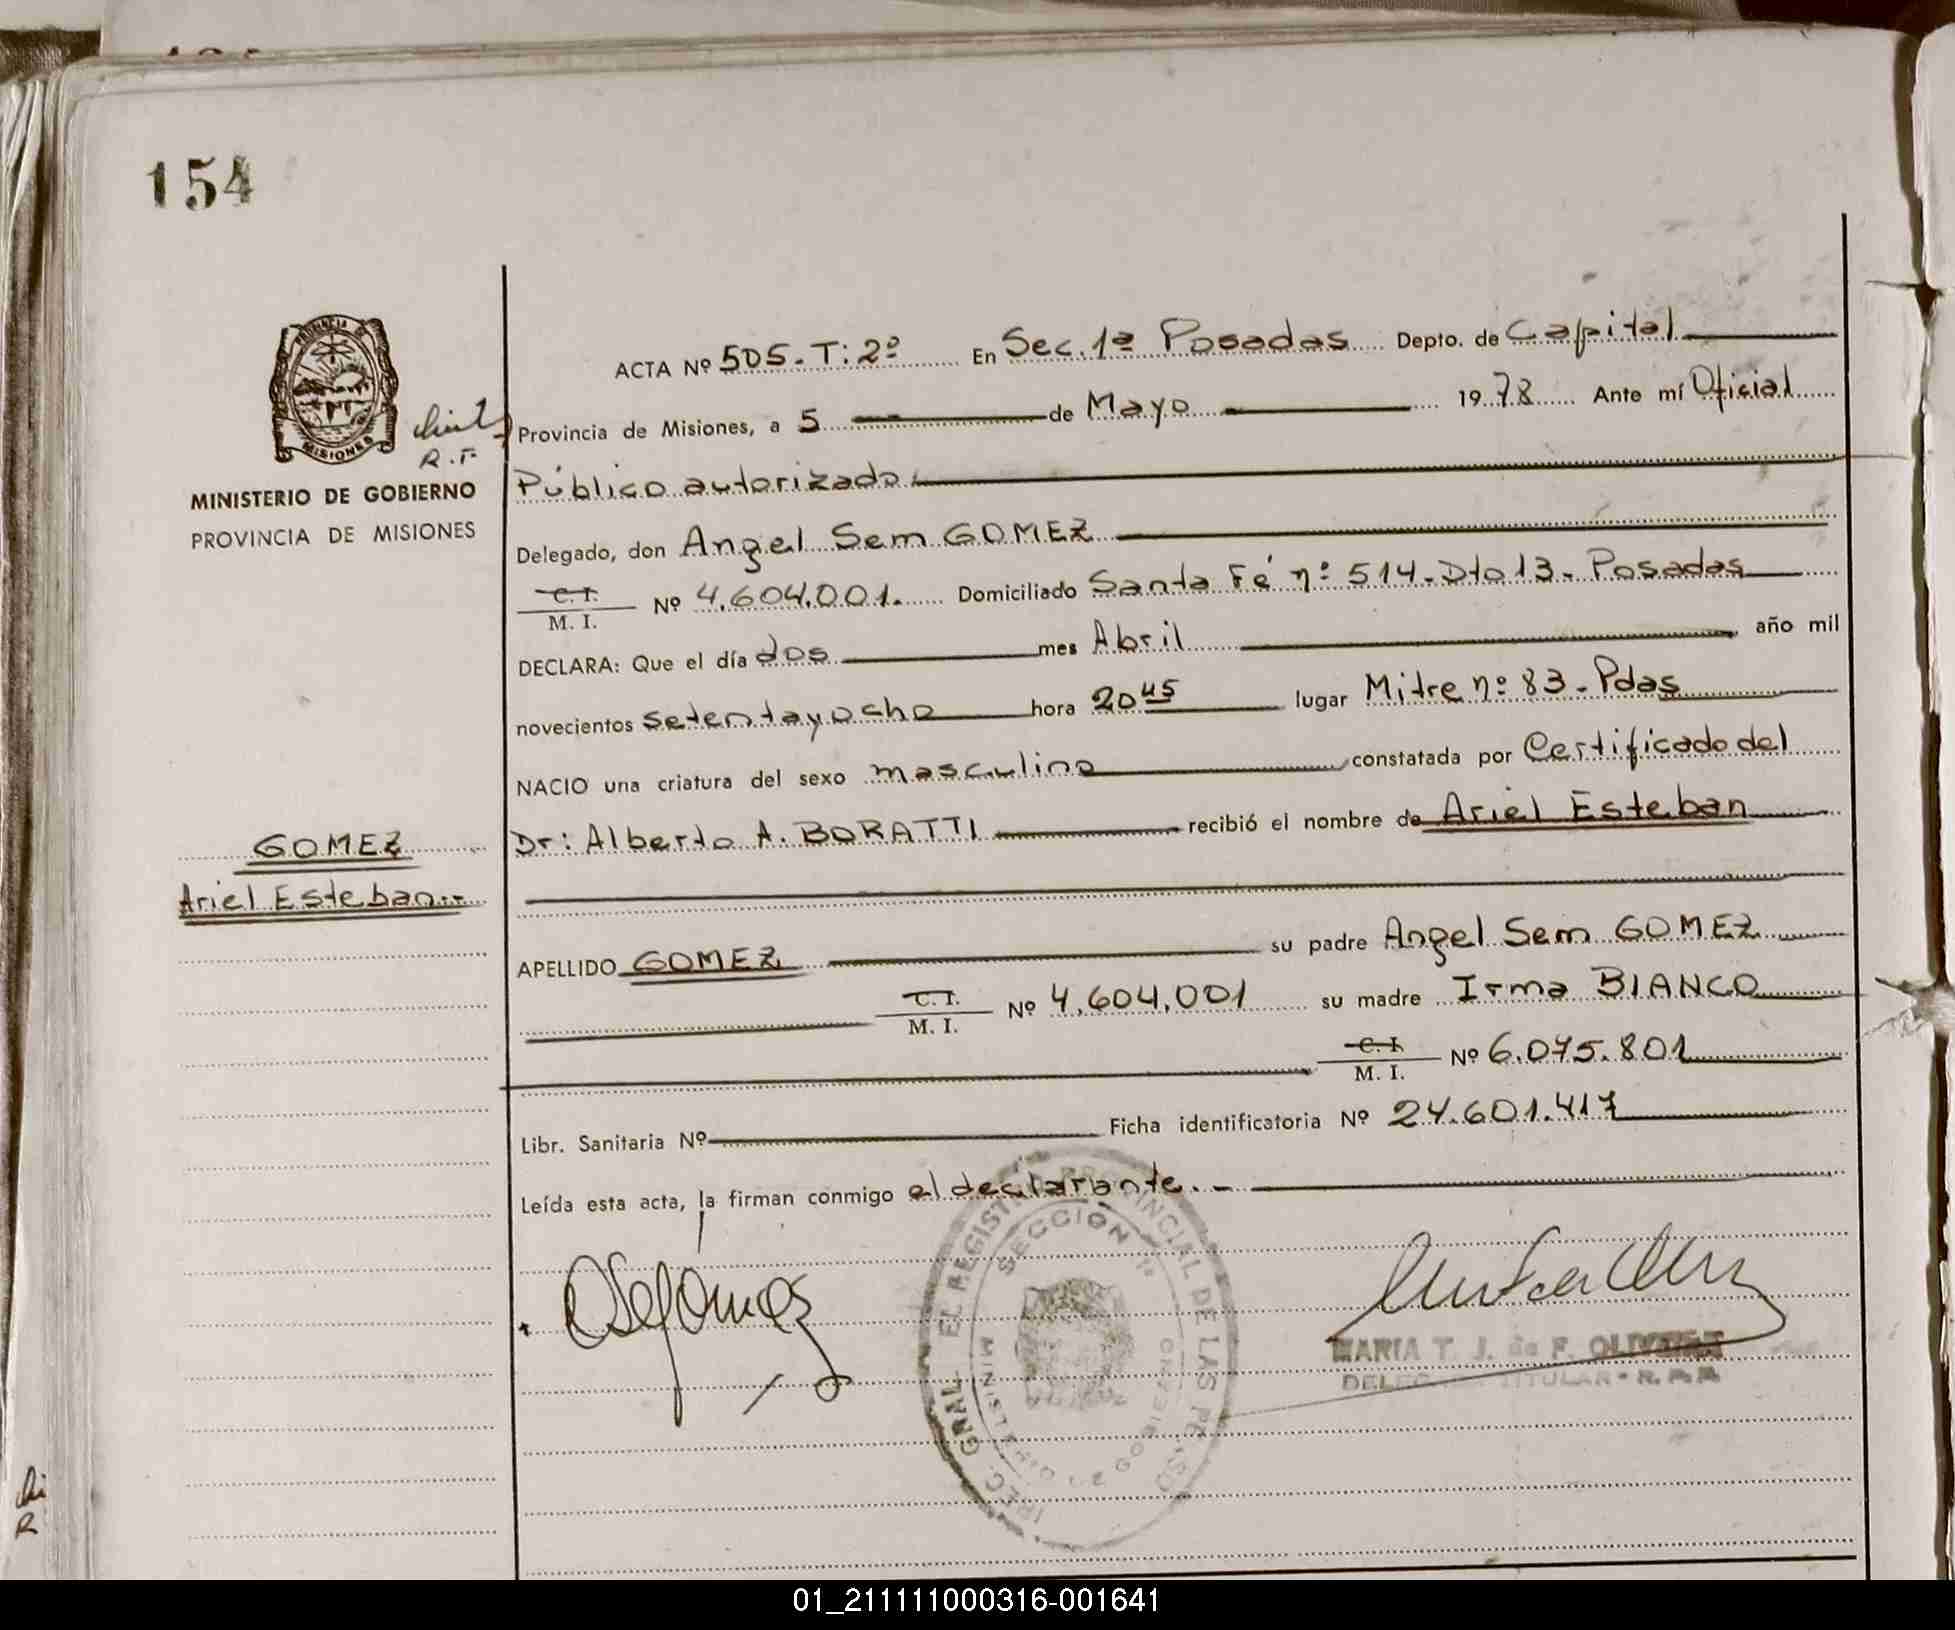 154
ACTA Nº 505. T: 2º En Sec. 1ª Posadas Depto. de Capital
Provincia de Misiones, a 5 de Mayo 1978 Ante mí Oficial
R.F.
Público autorizado
MINISTERIO DE GOBIERNO
PROVINCIA DE MISIONES
Delegado, don Angel Sem GOMEZ
C. I. / M. I. Nº 4.604.001. Domiciliado Santa Fé nº 514. Dto 13. Posadas
DECLARA: Que el día dos mes Abril año mil
novecientos setentayocho hora 20 45 lugar Mitre nº 83 - Pdas
NACIO una criatura del sexo masculino constatada por Certificado del
Dr: Alberto A. BORATTI recibió el nombre de Ariel Esteban
GOMEZ
Ariel Esteban.-
APELLIDO GOMEZ su padre Angel Sem GOMEZ
C. I. / M. I. Nº 4.604.001 su madre Irma BIANCO
C. I. / M. I. Nº 6.075.801
Libr. Sanitaria Nº Ficha identificatoria Nº 24.601.417
Leída esta acta, la firman conmigo el declarante. -
EL REGISTRO PROVINCIAL DE LAS PERSO
SECCION 1ª
MARIA T. J. de F. OLIVERA
DELEGADA TITULAR - R. P. P.
01_211111000316-001641